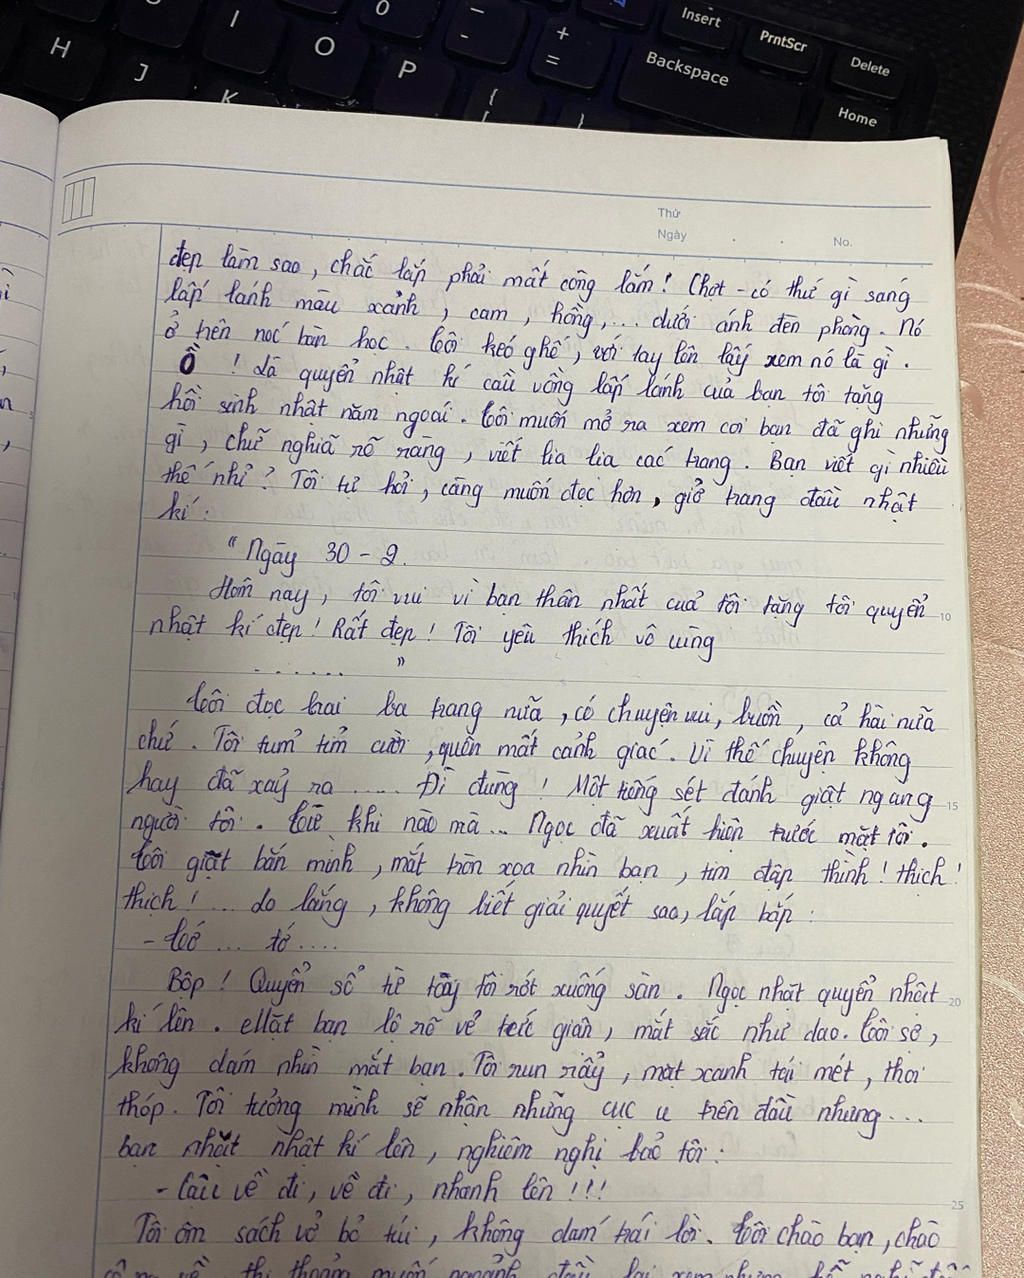 H
J
K
I
O
P
O
-
+
=
{
[
}
Insert
PrntScr
Delete
Backspace
Home
Thứ
Ngày
No.
đẹp làm sao, chắc hẳn phải mất công lắm! Chợt - có thứ gì sáng
lấp lánh màu xanh, cam, hồng,... dưới ánh đèn phòng. Nó
ở trên nóc bàn học. Tôi kéo ghế, với tay lên lấy xem nó là gì.
Ồ! Là quyển nhật kí cầu vồng lấp lánh của bạn tôi tặng
hồi sinh nhật năm ngoái. Tôi muốn mở ra xem coi bạn đã ghi những
gì, chữ nghĩa rõ ràng, viết lia lia các trang. Bạn viết gì nhiều
thế nhỉ? Tôi tự hỏi, càng muốn đọc hơn, giở trang đầu nhật
kí:
"Ngày 30 - 2.
Hôm nay, tôi vui vì bạn thân nhất của tôi tặng tôi quyển
nhật kí đẹp! Rất đẹp! Tôi yêu thích vô cùng
......"
Tôi đọc hai ba trang nữa, có chuyện vui, buồn, cả hài nữa
chứ. Tôi tủm tỉm cười, quên mất cảnh giác. Vì thế chuyện không
hay đã xảy ra ..... Đì đùng! Một tiếng sét đánh giật ngang
người tôi. Từ khi nào mà... Ngọc đã xuất hiện trước mặt tôi.
Tôi giật bắn mình, mắt tròn xoa nhìn bạn, tim đập thình! thịch!
thịch!... lo lắng, không biết giải quyết sao, lắp bắp:
- Tớ... tớ....
Bộp! Quyển sổ từ tay tôi rớt xuống sàn. Ngọc nhặt quyển nhật
kí lên. Mặt bạn lộ rõ vẻ tức giận, mắt sắc như dao. Tôi sợ,
không dám nhìn mắt bạn. Tôi run rẩy, mặt xanh tái mét, thoi
thóp. Tôi tưởng mình sẽ nhận những cục u trên đầu nhưng...
bạn nhặt nhật kí lên, nghiêm nghị bảo tôi:
- Cậu về đi, về đi, nhanh lên!!!
Tôi ôm sách vở bỏ túi, không dám trái lời. Tôi chào bạn, chào
10
15
20
25